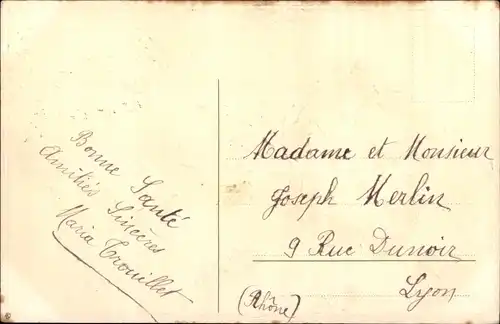 Bonne Santé
Amitiés Sincères
Maria Trouillet
Madame et Monsieur
Joseph Merlin
9 Rue Dunoir
Lyon
(Rhône)